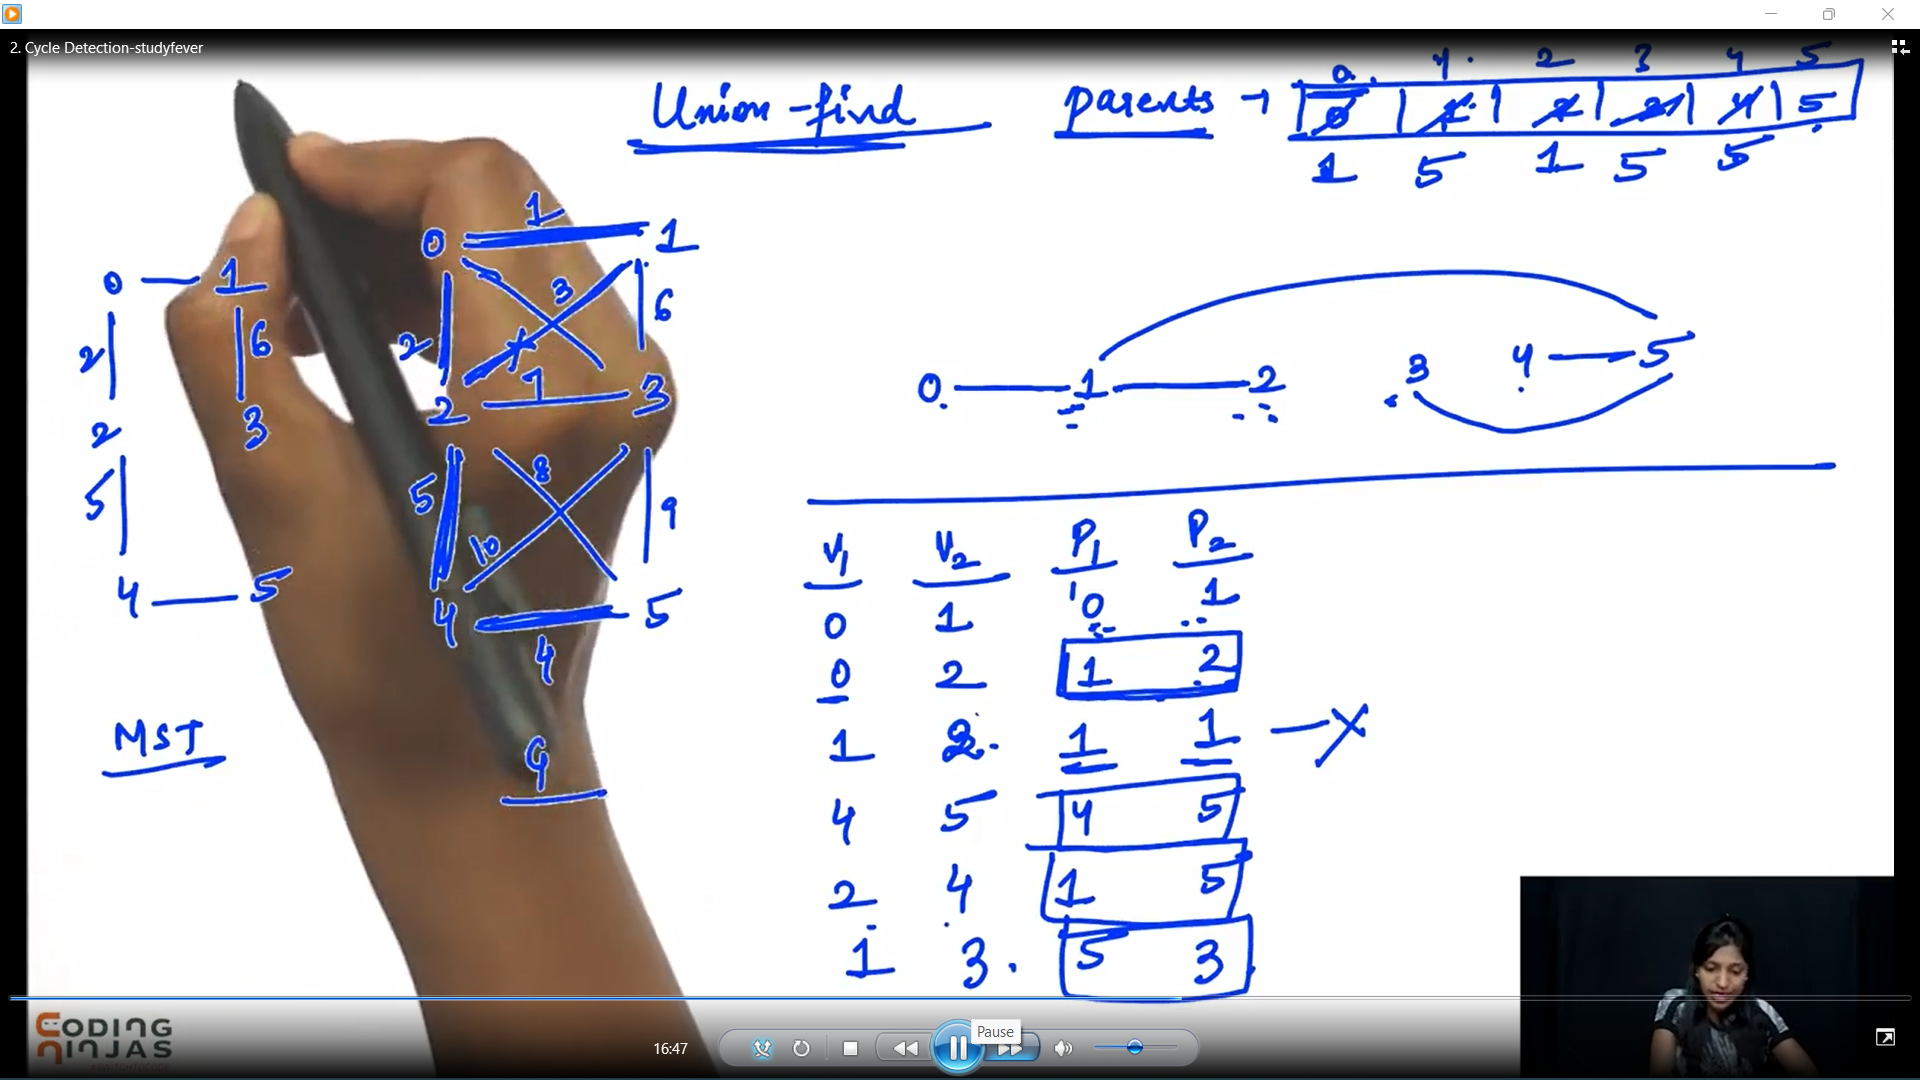 2. Cycle Detection-studyfever
Union-find
parents → 0 1 2 3 4 5
0 1 2 3 4 5
1 5 1 5 5
0 1 1
3
2 6
2 1 3
8
5 10 9
4 5
4
G
0 1
2 6
2 3
5
4 5
MST
0 1 2 3 4 5
V1 V2 P1 P2
0 1 0 1
0 2 1 2
1 2 1 1 X
4 5 4 5
2 4 1 5
1 3 5 3
CODING
NINJAS
16:47
Pause